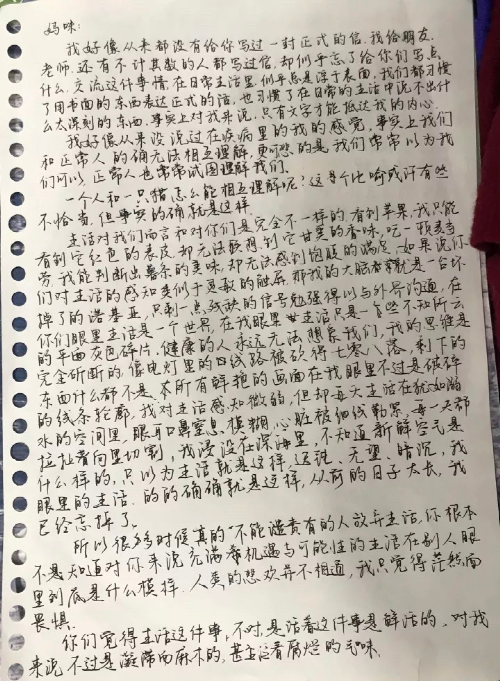 妈咪:
我好像从来都没有给你写过一封正式的信.我给朋友.
老师.还有不计其数的人都写过信.却似乎忘了给你们写点
什么.交流这件事情.在日常生活里.似乎总是浮于表面.我们都习惯
了用书面的东西表达正式的话,也习惯了在日常的生活中说不出什
么太深刻的东西.事实上对我来说,只有文字才能抵达我的内心.
我好像从来没说过在疾病里的我的感觉,事实上我们
和正常人的确无法相互理解,更可悲的是,我们常常以为我
们可以.正常人也常常试图理解我们.
一个人和一只猫怎么能相互理解呢?这个比喻或许有些
不恰当.但事实的确就是这样.
生活对我们而言和对你们是完全不一样的.看到苹果,我只能
看到它红色的表皮.却无法联想到它甘美的香味,吃一顿美
劳.我能判断出喜乐的美味.却无法感到饱腹的满足.如果说你
们对生活的感知类似于灵敏的触屏.那我的大脑就是一台坏
掉了的诺基亚,只剩一点残缺的信号勉强得以与外界沟通,在
你们眼里生活是一个世界,在我眼里生活只是一些不知所云
的平面灰色碎片.健康的人永远无法想象我们,我的思维是
完全断断的.像电灯里的线路被砍得七零八落.剩下的
东西什么都不是.所有鲜艳的画面在我眼里不过是破碎
的线条轮廓.我对生活感知微弱,但却每天生活在犹如溺
水的空间里.眼耳口鼻窒息,模糊,心脏被细线勒紧,每一天都
拉扯着向里切割.我浸没在深海里,不知道新鲜空气是
什么样的,只以为生活就是这样.迟钝、无望、暗沉,我
眼里的生活.的的确确就是这样,从前的日子太长,我
已经忘掉了.
所以很多时候真的"不能谴责有的人放弃生活,你根本
不是知道对你来说充满着机遇与可能性的生活在别人眼
里到底是什么模样.人类的悲欢并不相通,我只觉得茫然而
畏惧.
你们觉得生活这件事,不对,是活着这件事是鲜活的.对我
来说.不过是凝滞而麻木的,甚至泛着腐烂的气味.